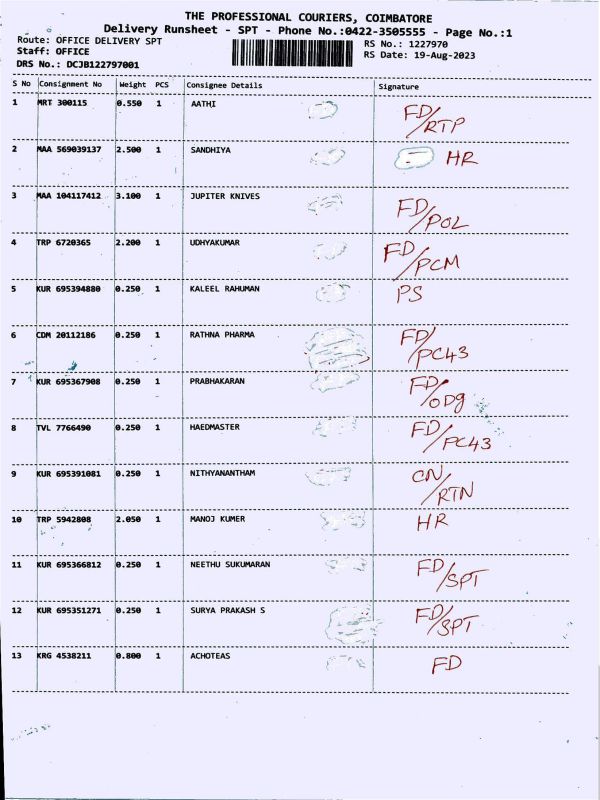 THE PROFESSIONAL COURIERS, COIMBATORE
Delivery Runsheet - SPT - Phone No.:0422-3505555 - Page No.:1
Route: OFFICE DELIVERY SPT
RS No.: 1227970
Staff: OFFICE
RS Date: 19-Aug-2023
DRS No.: DCJB122797001
S No Consignment No Weight PCS Consignee Details Signature
1 MRT 300115 0.550 1 AATHI FD/RTP
2 MAA 569039137 2.500 1 SANDHIYA HR
3 MAA 104117412 3.100 1 JUPITER KNIVES FD/POL
4 TRP 6720365 2.200 1 UDHYAKUMAR FD/PCM
5 KUR 695394880 0.250 1 KALEEL RAHUMAN PS
6 CDM 20112186 0.250 1 RATHNA PHARMA FD/PC43
7 KUR 695367908 0.250 1 PRABHAKARAN FD/ODg
8 TVL 7766490 0.250 1 HAEDMASTER FD/PC43
9 KUR 695391081 0.250 1 NITHYANANTHAM CN/RTN
10 TRP 5942808 2.050 1 MANOJ KUMER HR
11 KUR 695366812 0.250 1 NEETHU SUKUMARAN FD/SPT
12 KUR 695351271 0.250 1 SURYA PRAKASH S FD/SPT
13 KRG 4538211 0.800 1 ACHOTEAS FD